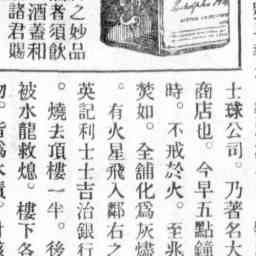 之妙品
者須飲
酒蓋和
諸君賜
士球公司。乃著名大
商店也。今早五點鐘
時。不戒於火。至兆
焚如。全舖化爲灰燼
。有火星飛入鄰右之
英記利士士吉治銀行
。燒去頂樓一半。後
被水龍救熄。樓下各
物。皆爲水漬。